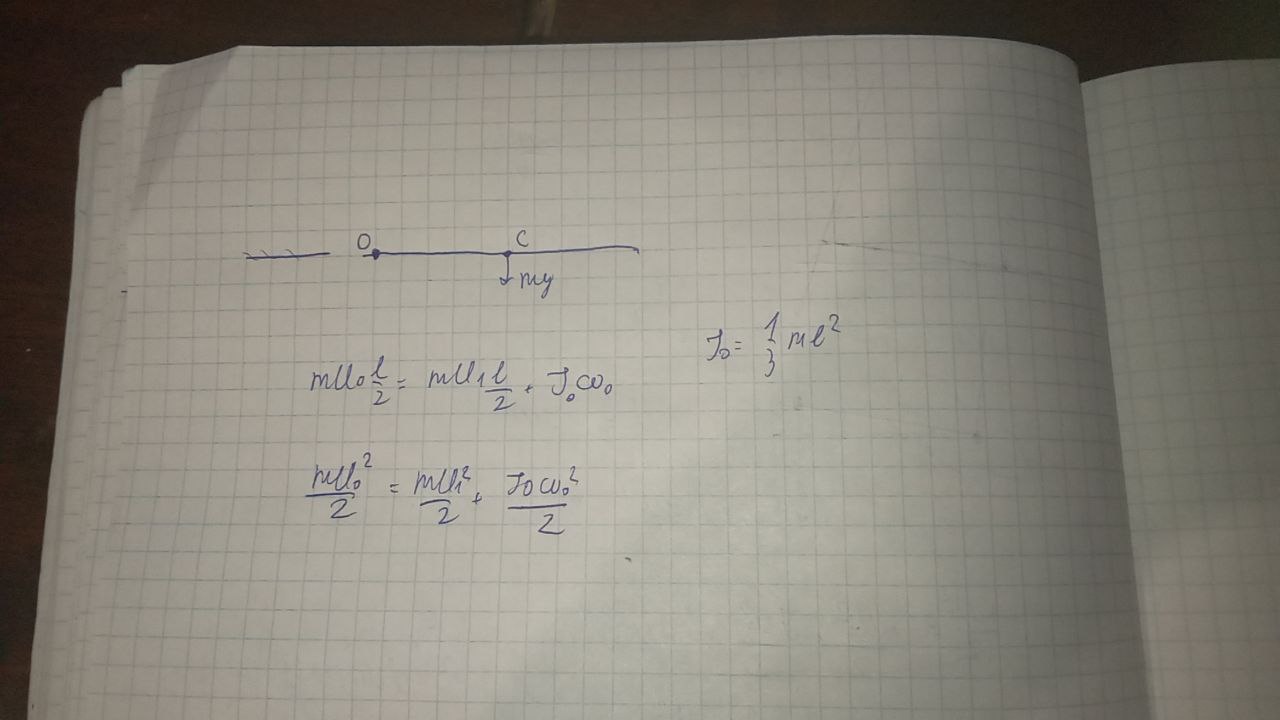 O C
mg
J₀ = 1/3 ml²
mU₀ l/2 = mU₁ l/2 + J₀ω₀
mU₀²/2 = mU₁²/2 + J₀ω₀²/2